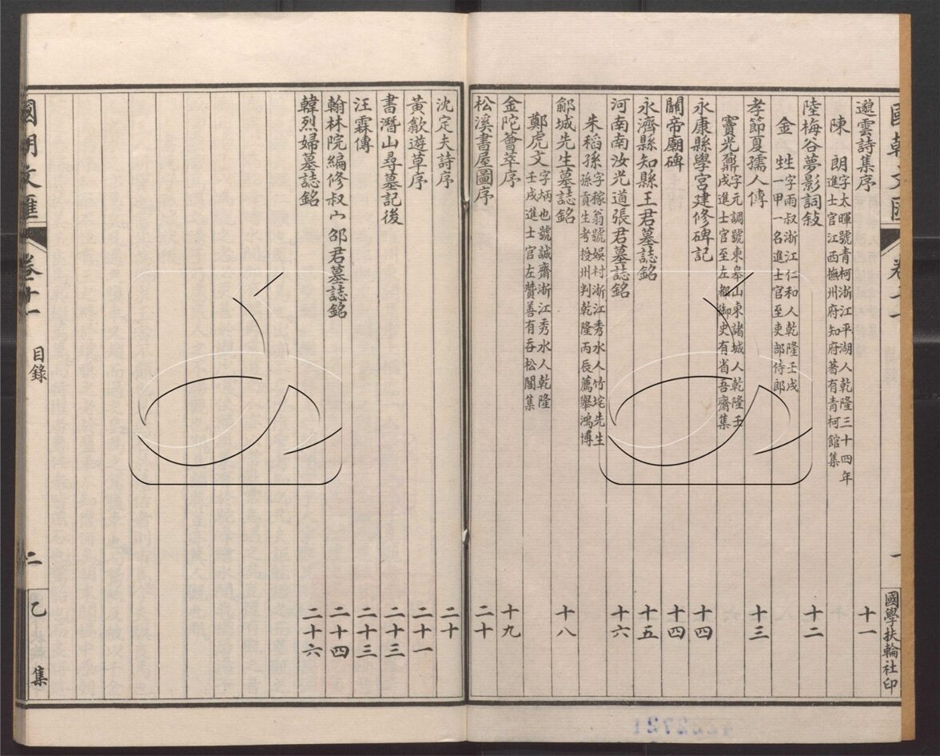 國朝文匯 卷十一 一 國學扶輪社印
邀雲詩集序 十一
陳 朗 字太暉號青柯浙江平湖人乾隆三十四年
進士官江西撫州府知府著有青柯館集
陸梅谷夢影詞敍 十二
金 甡 字雨叔浙江仁和人乾隆壬戌
一甲一名進士官至吏部侍郎
孝節夏孺人傳 十三
竇光鼐 字元調號東皋山東諸城人乾隆壬
戌進士官至左都御史有省吾齋集
永康縣學宮建修碑記 十四
關帝廟碑 十四
永濟縣知縣王君墓誌銘 十五
河南南汝光道張君墓誌銘 十六
朱稻孫 字稼翁號娛村浙江秀水人竹垞先生
孫貢生考授州判乾隆丙辰薦舉鴻博
鄃城先生墓誌銘 十八
鄭虎文 字炳也號誠齋浙江秀水人乾隆
壬戌進士官左贊善有吞松閣集
金陀薈萃序 十九
松溪書屋圖序 二十
沈定夫詩序 二十
黃歙遊草序 二十一
書潛山尋墓記後 二十三
汪霖傳 二十三
翰林院編修叔宀邵君墓誌銘 二十四
韓烈婦墓誌銘 二十六
國朝文匯 卷十一 目錄 二 乙 集